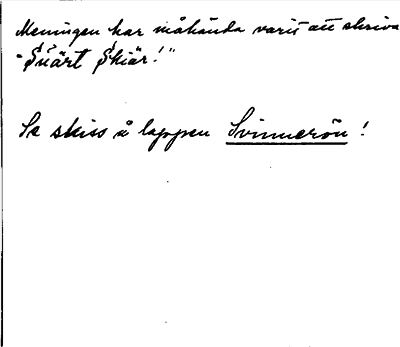 Meningen har måhända varit att skriva
"Svärt Skiär!"
Se skiss å lappen Svinnerön!